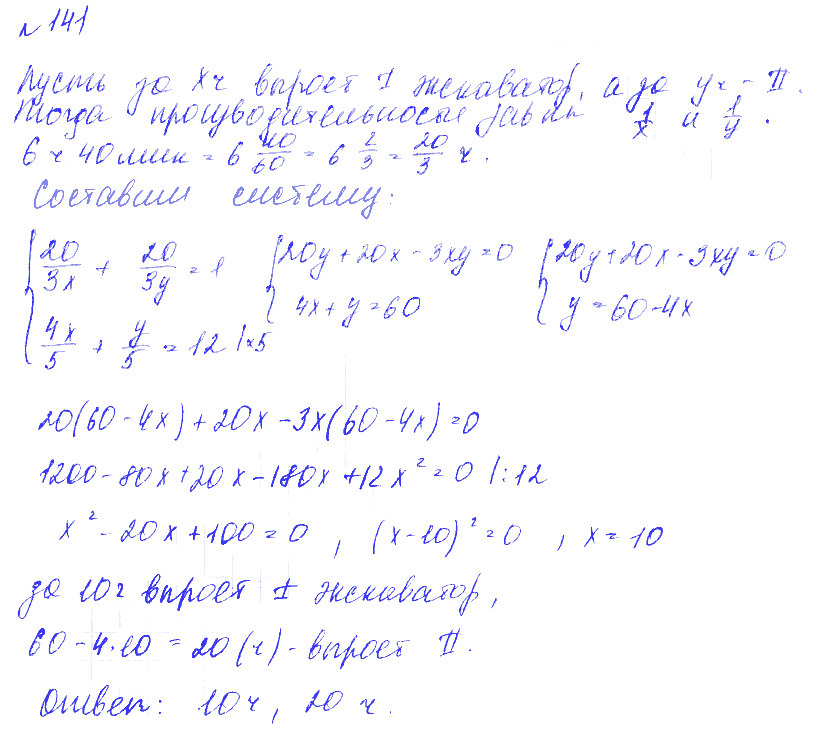 № 141
Пусть за х ч выроет I экскаватор, а за у ч - II.
Тогда производительности равны 1/x и 1/y.
6 ч 40 мин = 6 40/60 = 6 2/3 = 20/3 ч.
Составим систему:
{ 20/3x + 20/3y = 1 { 20y + 20x - 3xy = 0 { 20y + 20x - 3xy = 0
4x/5 + y/5 = 12 |×5 4x + y = 60 y = 60 - 4x
20(60 - 4x) + 20x - 3x(60 - 4x) = 0
1200 - 80x + 20x - 180x + 12x² = 0 |:12
x² - 20x + 100 = 0 , (x - 10)² = 0 , x = 10
за 10 ч выроет I экскаватор,
60 - 4·10 = 20 (ч) - выроет II.
Ответ: 10 ч, 20 ч.